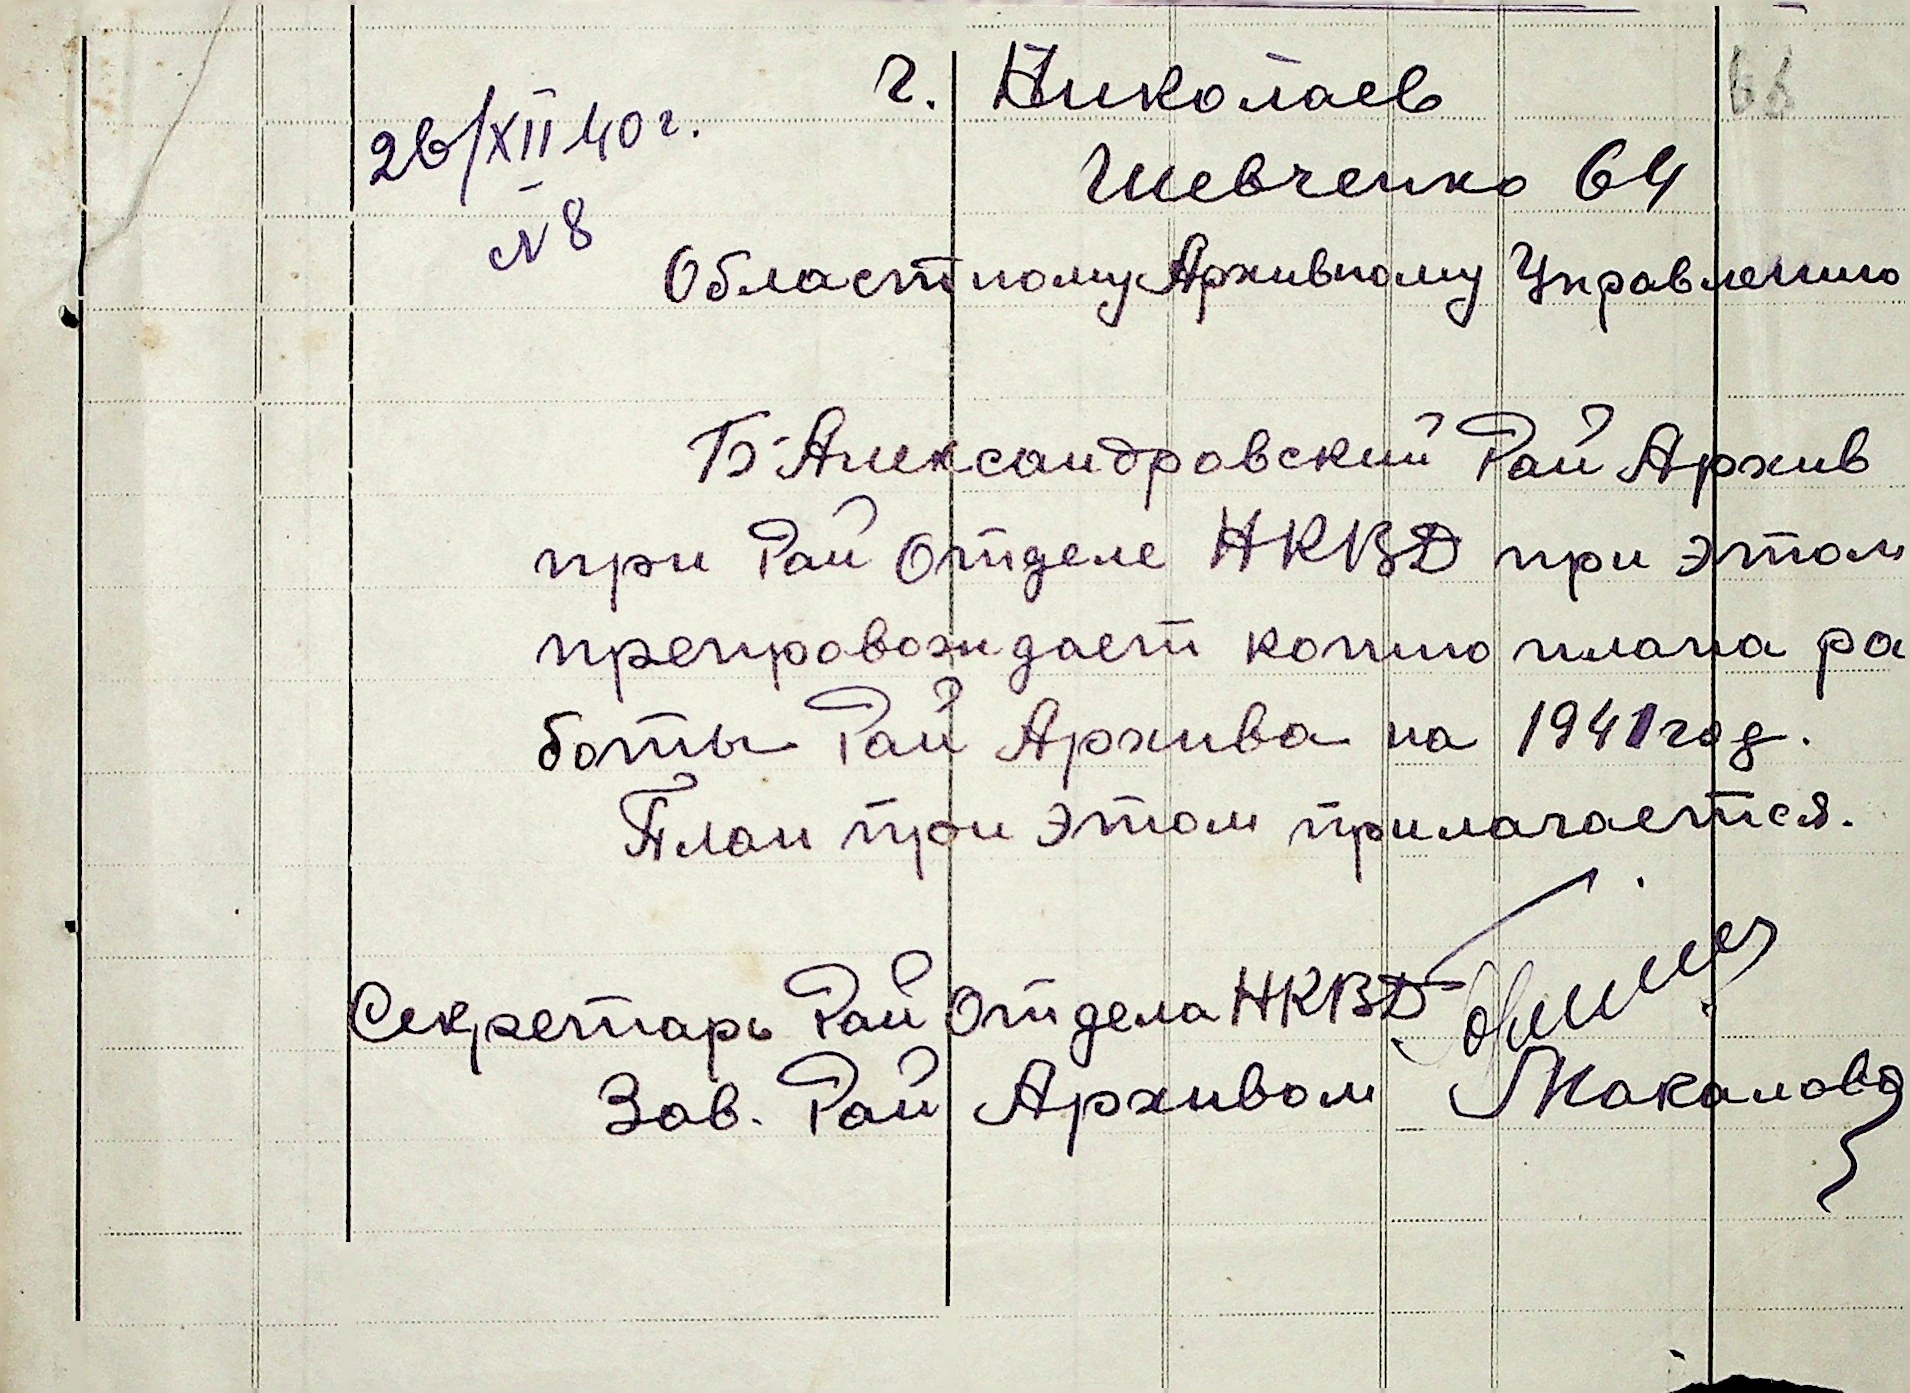 г. Николаев
26/XII 40 г.
Шевченко 64
N 8
Областному Архивному Управлению
Б-Александровский Рай Архив
при Рай Отделе НКВД при этом
препровождает копию плана ра
боты Рай Архива на 1941 год.
План при этом прилагается.
Секретарь Рай Отдела НКВД
Зав. Рай Архивом Макалова